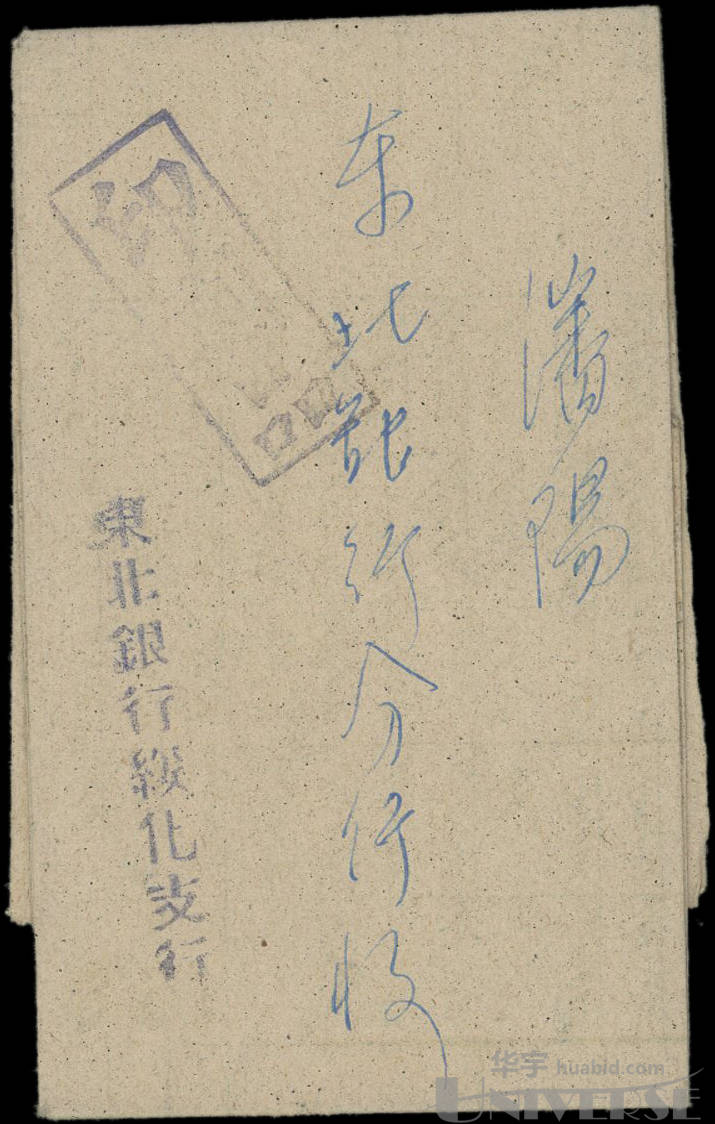 瀋陽
东北銀行分行收
印 品
東北銀行綏化支行
华宇 huabid.com
UNIVERSE